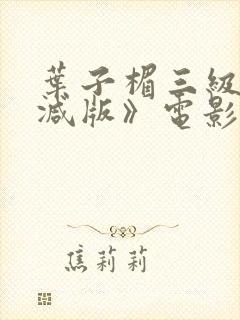 葉子楣三級
減版》電影
焦莉莉